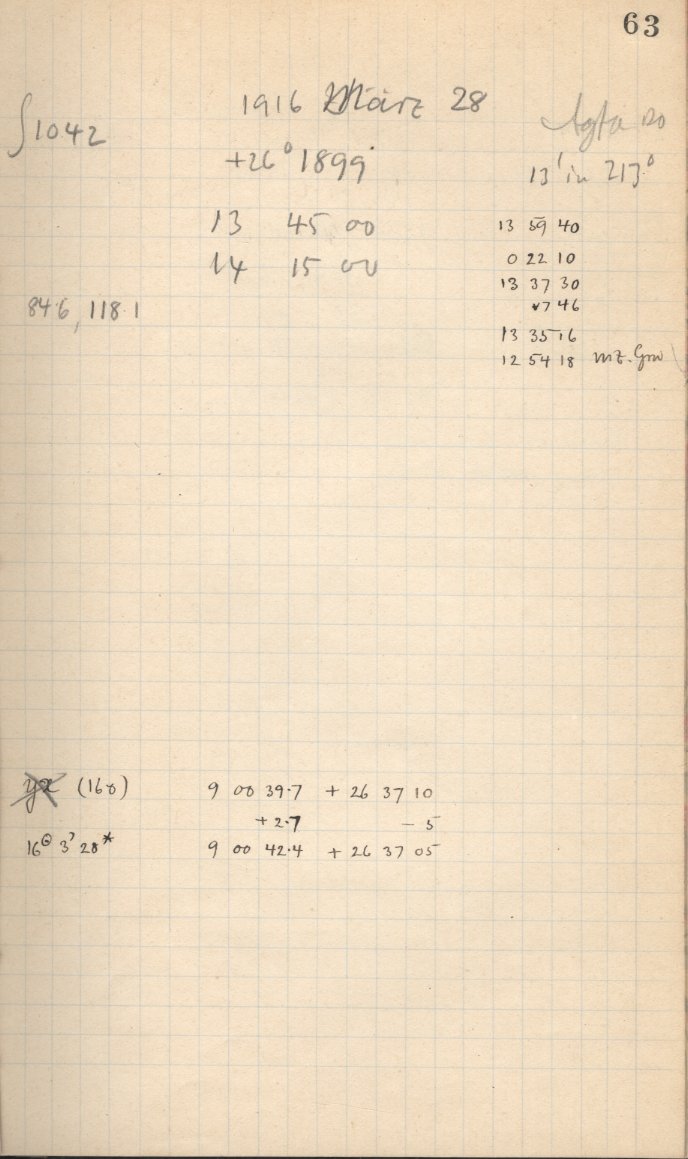 63
1916 März 28
∫1042
Agfa 120
+26° 1899
13' in 213°
13 45 00
14 15 00
84.6, 118.1
13 59 40
0 22 10
13 37 30
7 46
13 35 16
12 54 18 mz. Grw
(160)
9 00 39.7 + 26 37 10
+ 2.7 - 5
16 3 28*
9 00 42.4 + 26 37 05